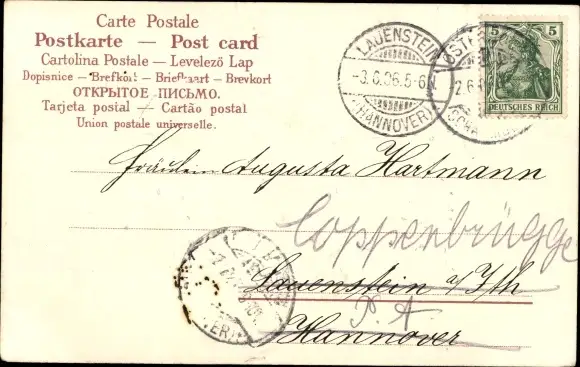 Carte Postale
Postkarte — Post card
Cartolina Postale — Levelező Lap
Dopisnice — Brefkort — Briefkaart — Brevkort
ОТКРЫТОЕ ПИСЬМО.
Tarjeta postal — Cartão postal
Union postale universelle.
LAUENSTEIN
-3.6.06.5-6N.
(HANNOVER)
5 5
DEUTSCHES REICH
Fräulein Augusta Hartmann
Coppenbrügge
Lauenstein a/Ith
P. A
Hannover